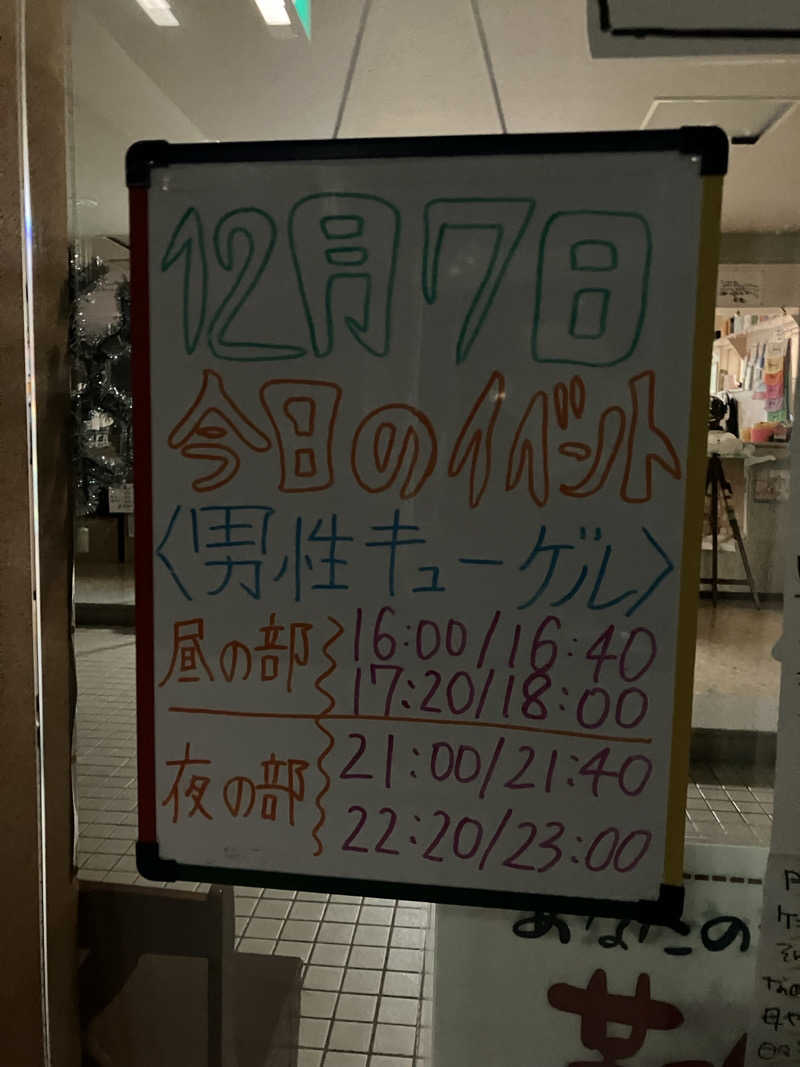 12月7日
今日のイベント
〈男性キューゲル〉
昼の部
16:00/16:40
17:20/18:00
夜の部
21:00/21:40
22:20/23:00
あなたの